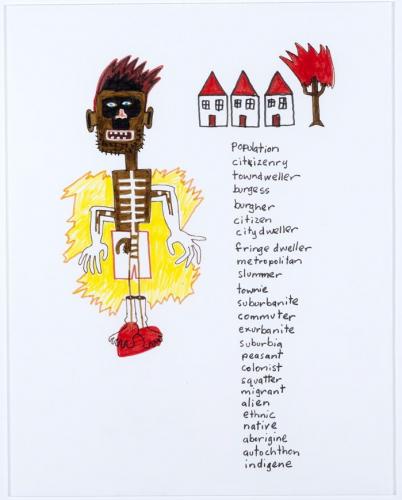 Population
citizenry
towndweller
burgess
burgher
citizen
city dweller
fringe dweller
metropolitan
slummer
townie
suburbanite
commuter
exurbanite
suburbia
peasant
colonist
squatter
migrant
alien
ethnic
native
aborigine
autochthon
indigene